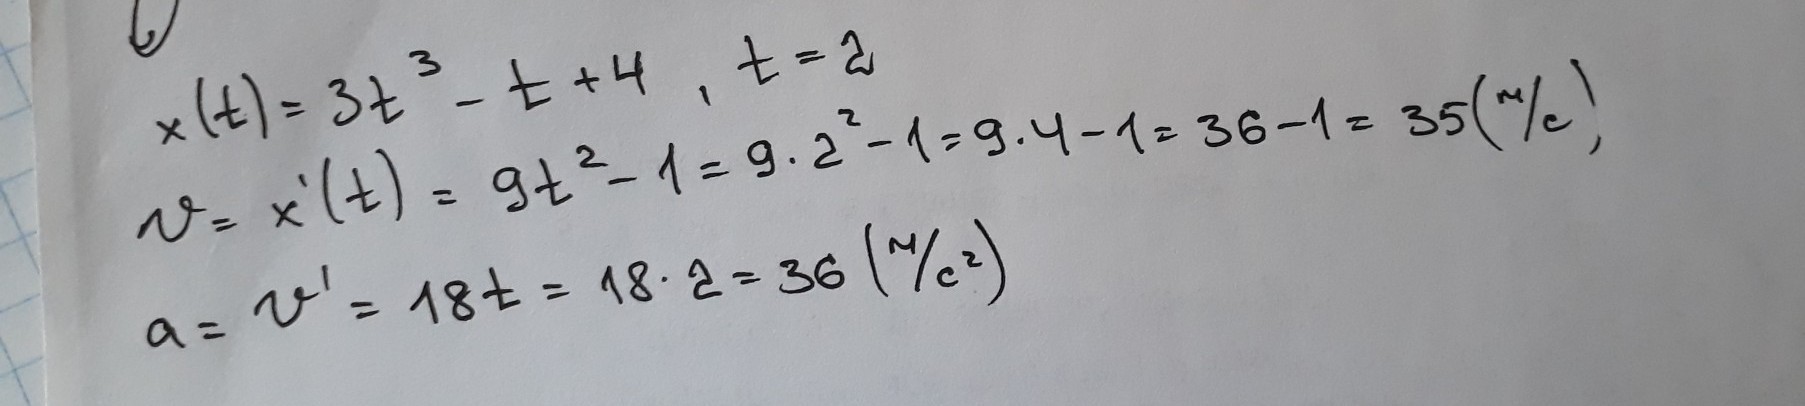 x(t) = 3t³ - t + 4 , t = 2
v = x'(t) = 9t² - 1 = 9 · 2² - 1 = 9 · 4 - 1 = 36 - 1 = 35 (м/с),
a = v' = 18t = 18 · 2 = 36 (м/с²)